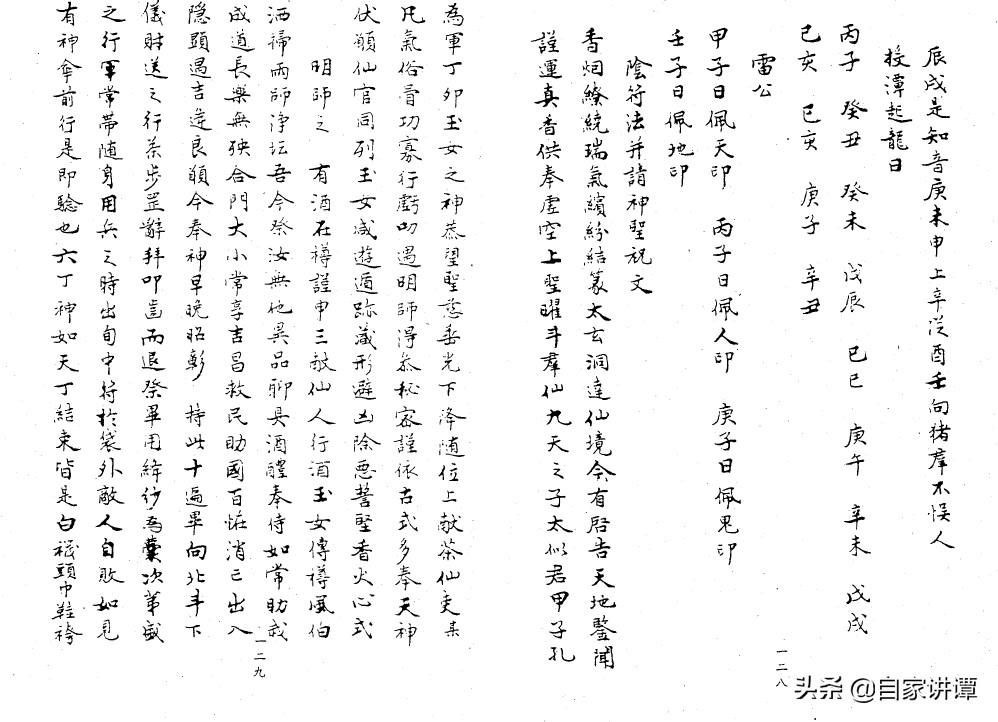 辰戌是知音庚未申上辛從酉壬向猪羣不悮人
授潭起龍日
丙子 癸丑 癸未 戊辰 己巳 庚午 辛未 戊戌
己亥 己亥 庚子 辛丑
雷公
甲子日佩天印 丙子日佩人印 庚子日佩鬼印
壬子日佩地印
陰符法并請神聖祝文
香烟繚繞瑞氣繽紛結篆太玄洞達仙境今有啓告天地鑒聞
謹運真香供奉虛空上聖曜斗羣仙九天之子太似君甲子孔
一二八
為軍丁卯玉女之神恭望聖慈垂光下降随位上献茶仙吏某
凡氣俗骨功寡行虧叨遇明師得叅秘密謹依古式多奉天神
伏願仙官同列玉女咸遊遁跡藏形避凶除惡誓堅香火心式
明師之 有酒在樽謹申三献仙人行酒玉女傳樽風伯
洒掃雨師净坛吾今祭汝無他異品聊具酒醴奉侍如常助我
成道長樂無殃合門大小常享吉昌救民助國百怪消亡出入
隐顕遇吉逢良願今奉神早晚昭彰 持此十遍畢向北斗下
儀財送之行茶步罡辭拜叩齿而退祭畢用絳纱為囊次第盛
之行軍常帶随身用兵之時出旬中符於袋外敵人自敗如見
有神傘前行是即驗也六丁神如天丁結束皆是白袍頭巾鞋袴
一二九
头条 @自家讲谭